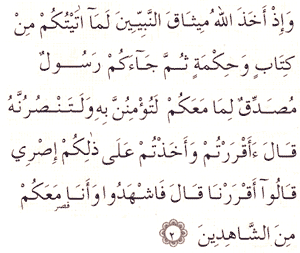 وَإِذْ أَخَذَ اللهُ مِيثَاقَ النَّبِيِّينَ لَمَآ اٰتَيْتُكُمْ مِنْ
كِتَابٍ وَحِكْمَةٍ ثُمَّ جَآءَكُمْ رَسُولٌ
مُصَدِّقٌ لِمَا مَعَكُمْ لَتُؤْمِنُنَّ بِهِ وَلَتَنْصُرُنَّهُ
قَالَ ءَأَقْرَرْتُمْ وَأَخَذْتُمْ عَلَى ذٰلِكُمْ إِصْرِي
قَالُوٓا أَقْرَرْنَا قَالَ فَاشْهَدُوا وَأَنَا مَعَكُمْ
قصر
مِنَ الشَّاهِدِينَ ٢